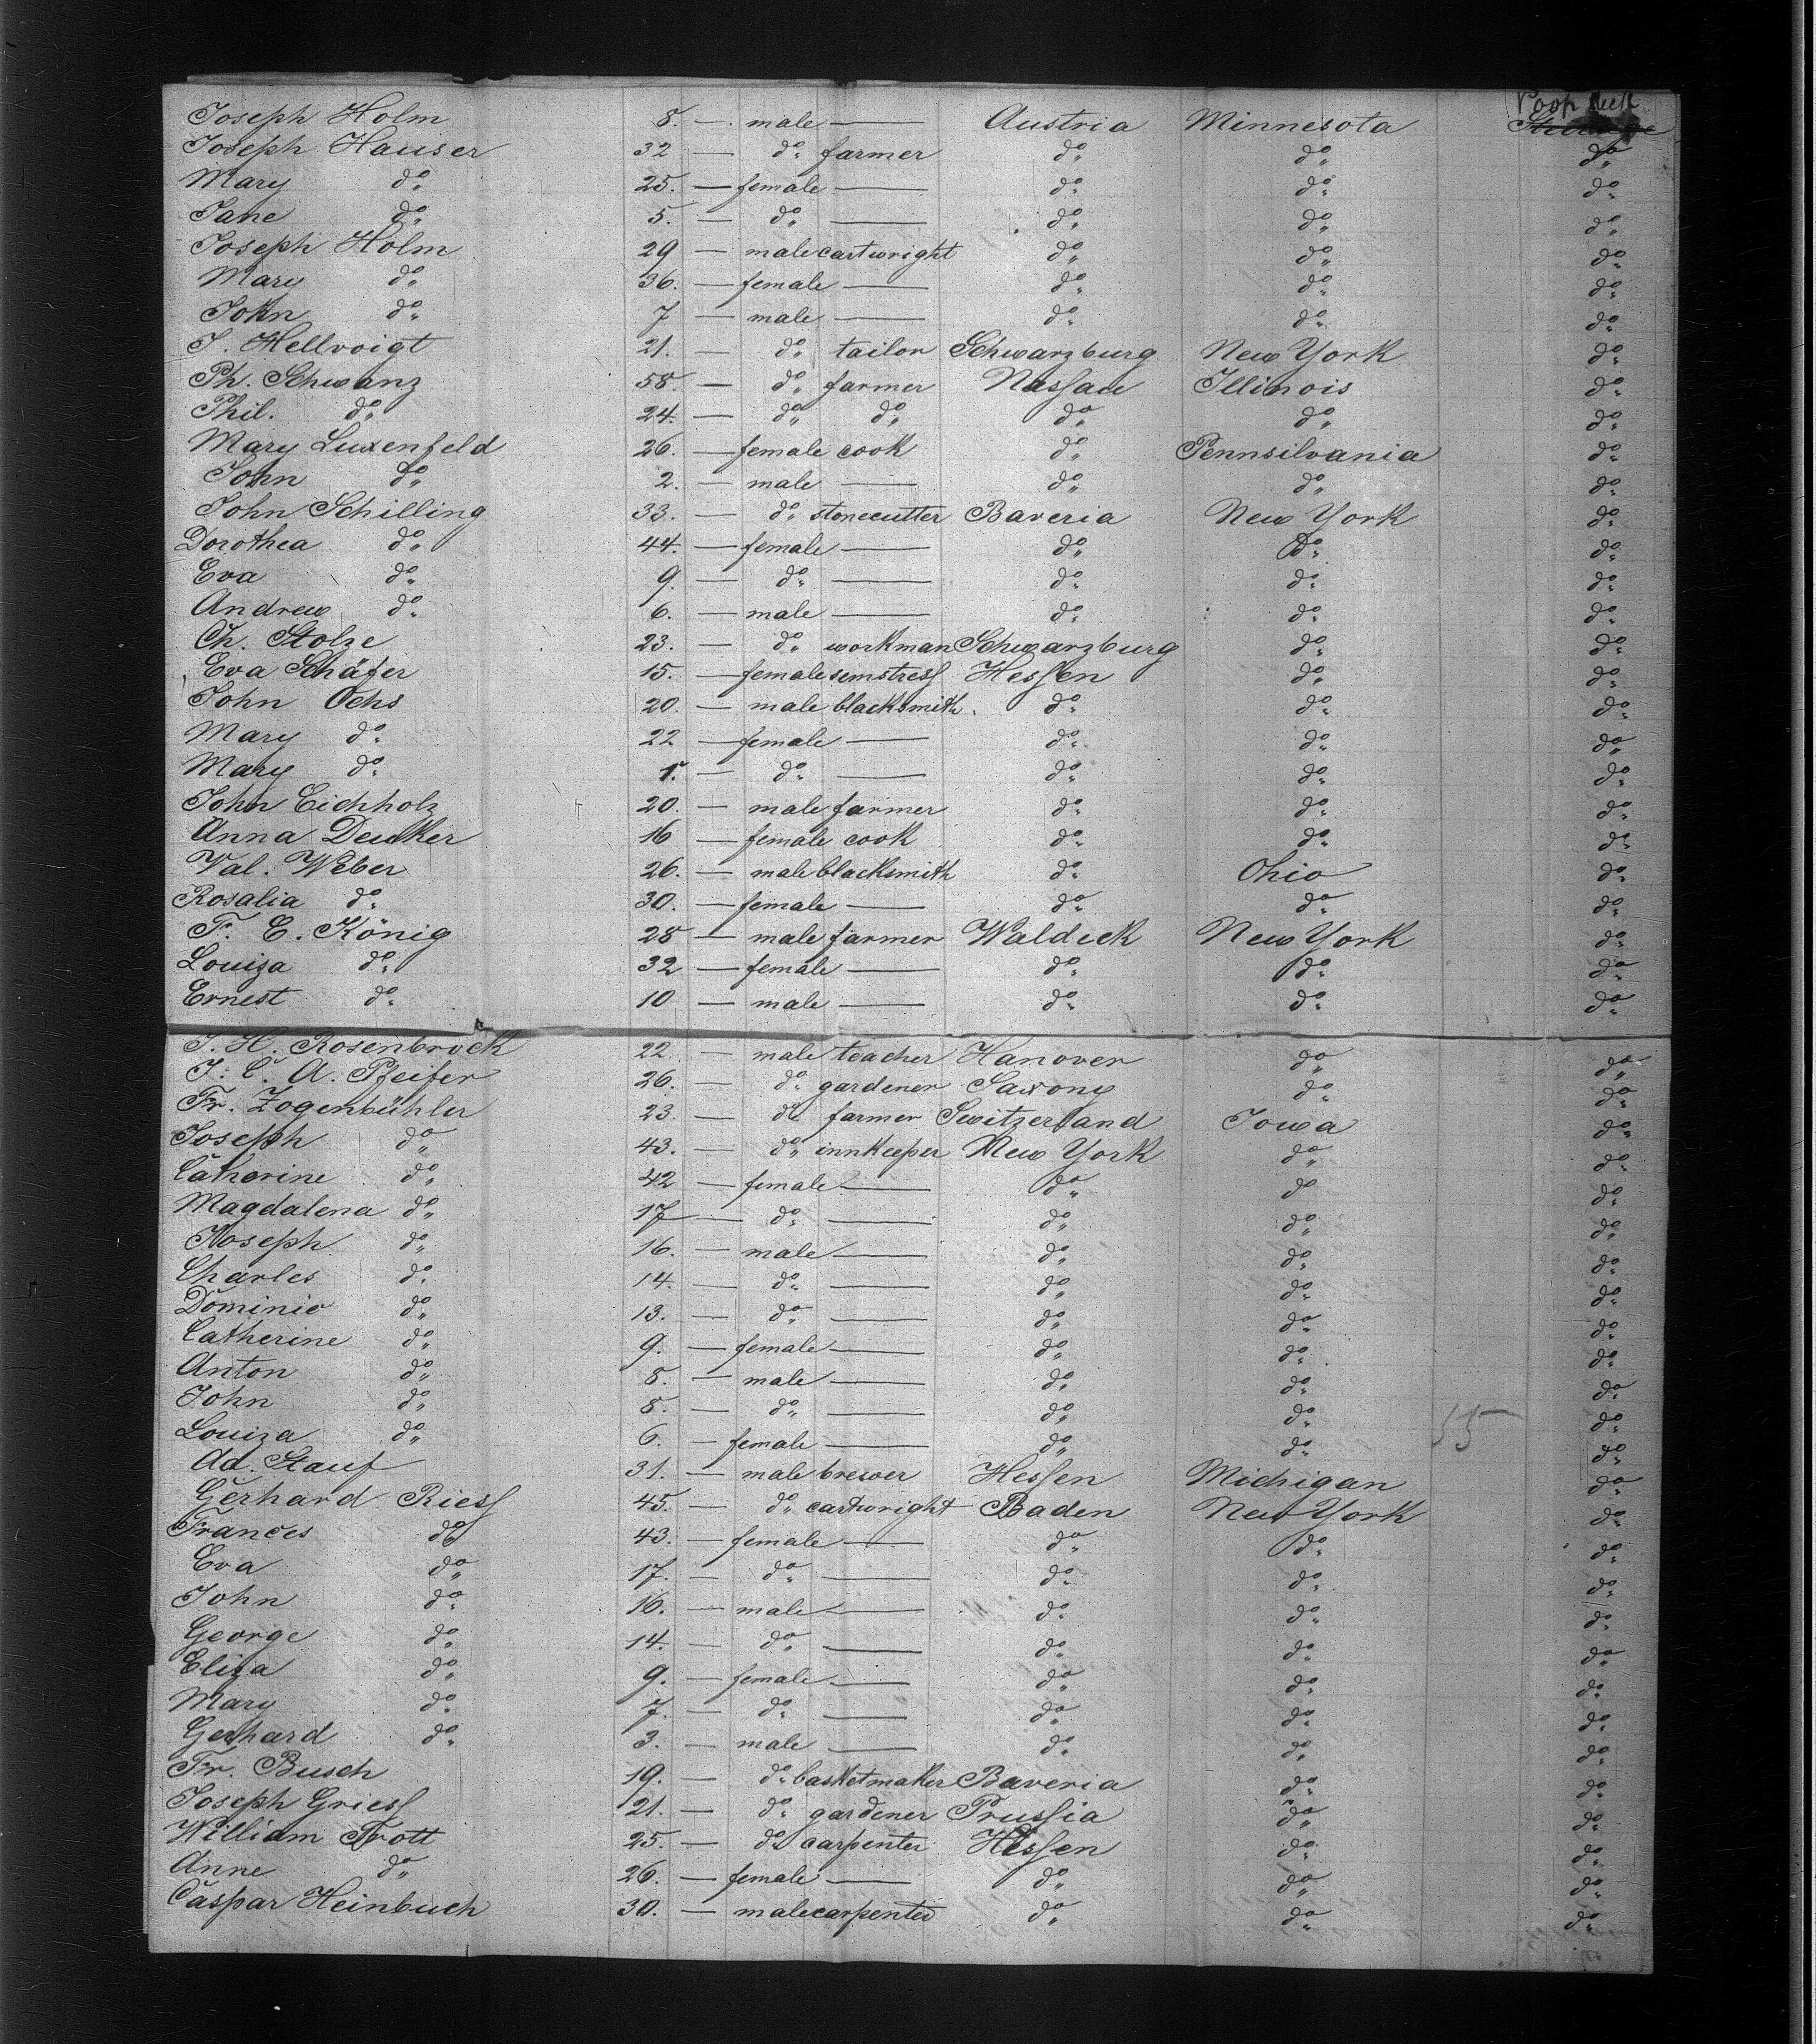 Poop deck
Joseph Holm 8. — male — Austria Minnesota Steerage
Joseph Hauser 32 — do farmer do do do
Mary do 25. — female — do do do
Jane do 5. — do — do do do
Joseph Holm 29 — male cartwright do do do
Mary do 36. — female — do do do
John do 7 — male — do do do
J. Hellvoigt 21. — do tailor Schwarzburg New York do
Ph. Schwanz 58. — do farmer Nassau Illinois do
Phil. do 24. — do do do do do
Mary Luxenfeld 26. — female cook do Pennsilvania do
John do 2. — male — do do do
John Schilling 33. — do stonecutter Baveria New York do
Dorothea do 44. — female — do do do
Eva do 9. — do — do do do
Andrew do 6. — male — do do do
Ch. Stolze 23. — do workman Schwarzburg do do
Eva Schäfer 15. — female semstress Hessen do do
John Ochs 20. — male blacksmith do do do
Mary do 22 — female — do do do
Mary do 1. — do — do do do
John Eichholz 20. — male farmer do do do
Anna Deuker 16 — female cook do do do
Val. Weber 26. — male blacksmith do Ohio do
Rosalia do 30. — female — do do do
F. E. König 28 — male farmer Waldeck New York do
Louiza do 32 — female — do do do
Ernest do 10 — male — do do do
J. H. Rosenbrock 22. — male teacher Hanover do do
J. C. A. Pfeifer 26. — do gardener Saxony do do
Fr. Zogenbühler 23. — do farmer Switzerland Iowa do
Joseph do 43. — do innkeeper New York do do
Catherine do 42 — female — do do do
Magdalena do 17 — do — do do do
Joseph do 16. — male — do do do
Charles do 14. — do — do do do
Dominic do 13. — do — do do do
Catherine do 9. — female — do do do
Anton do 8. — male — do do do
John do 8. — do — do do 55 do
Louiza do 6. — female — do do do
Ad. Stauf 31. — male brewer Hessen Michigan do
Gerhard Riess 45. — do cartwright Baden New York do
Frances do 43. — female — do do do
Eva do 17. — do — do do do
John do 16. — male — do do do
George do 14. — do — do do do
Eliza do 9. — female — do do do
Mary do 7. — do — do do do
Gerhard do 3. — male — do do do
Fr. Busch 19. — do basketmaker Baveria do do
Joseph Griess 21. — do gardener Prussia do do
William Trott 25. — do carpenter Hessen do do
Anne do 26. — female — do do do
Caspar Heinbuch 30. — male carpenter do do do